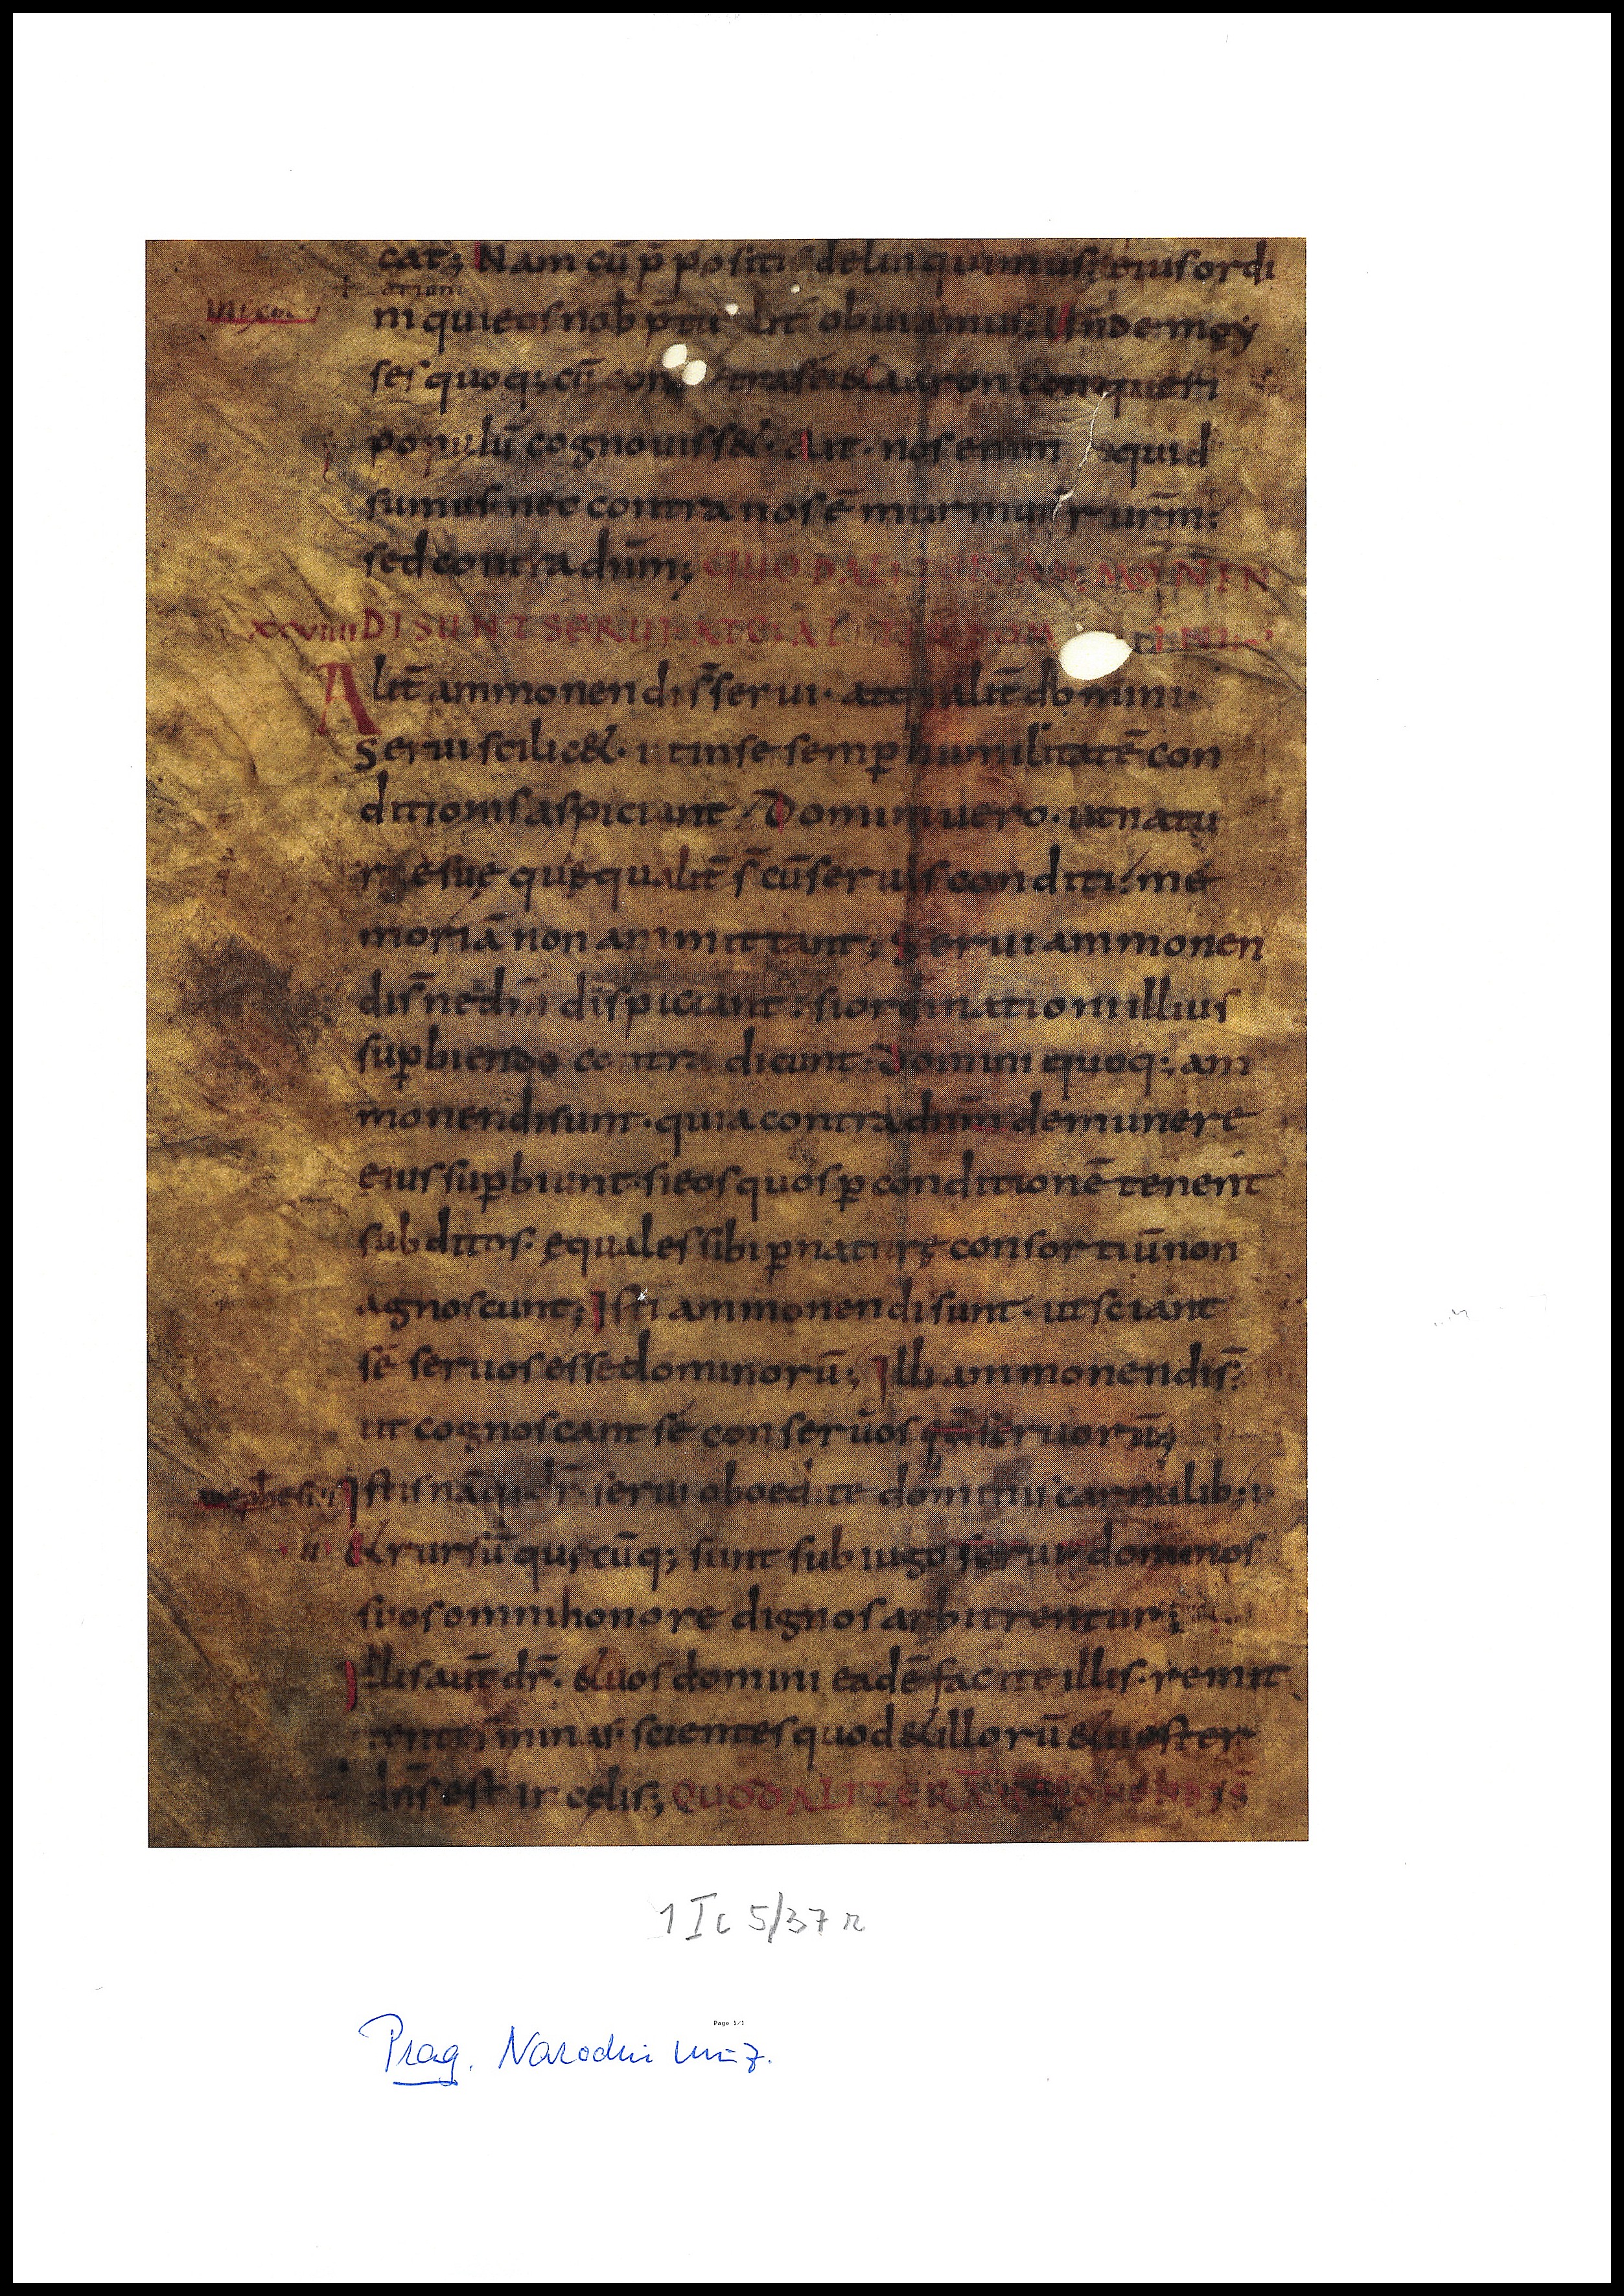 cat; Nam cū p̄positi delinquimus: eius ordi
ni qui eos nob p̄tulit obuiamus: Unde moy
ses quoq; cū con tra se & aaron conqueri
populū cognouiss&· Ait· nos enim quid
sumus· nec contra nos ē murmur ur̄m:
sed contra dn̄m; QUOD ALITER AMMONEN
xxviiii DI SUNT SERUI ATQ· ALITER DOM
Alit̄ ammonendi s̄ serui· atq; alit̄ domini·
Serui scilic&· ut in se semp humilitatē con
ditionis aspiciant· Domini uero· ut natu
rę suę qua ęqualit̄ s̄ cū seruis conditi: me
moriā non ammittant; Serui ammonen
di s̄ ne dn̄m dispiciant: si ordinationi illius
supbiendo contra dicunt· Domini quoq; am
monendi sunt· quia contra dn̄m de munere
eius supbiunt· si eos quos p conditionē tenent
subditos· ęquales sibi p naturę consortiū non
agnoscunt; Isti ammonendi sunt· ut sciant
se seruos esse dominorū; Illi ammonendi s̄:
ut cognoscant se conseruos esse seruorū;
ad ephesios Istis nāq; dr̄ serui oboedite dominis carnalib;
& rursū quicūq; sunt sub iugo serui dominos
suos omni honore dignos arbitrentur;
Illis aut̄ dr̄· & uos domini eadē facite illis· remit
tentes minas· scientes quod & illorū & uester
dn̄s est in cęlis; QUOD ALITER AMMONENDI S̄
1 Ic 5/37 r
Page 1/1
Prag. Narodni muz.